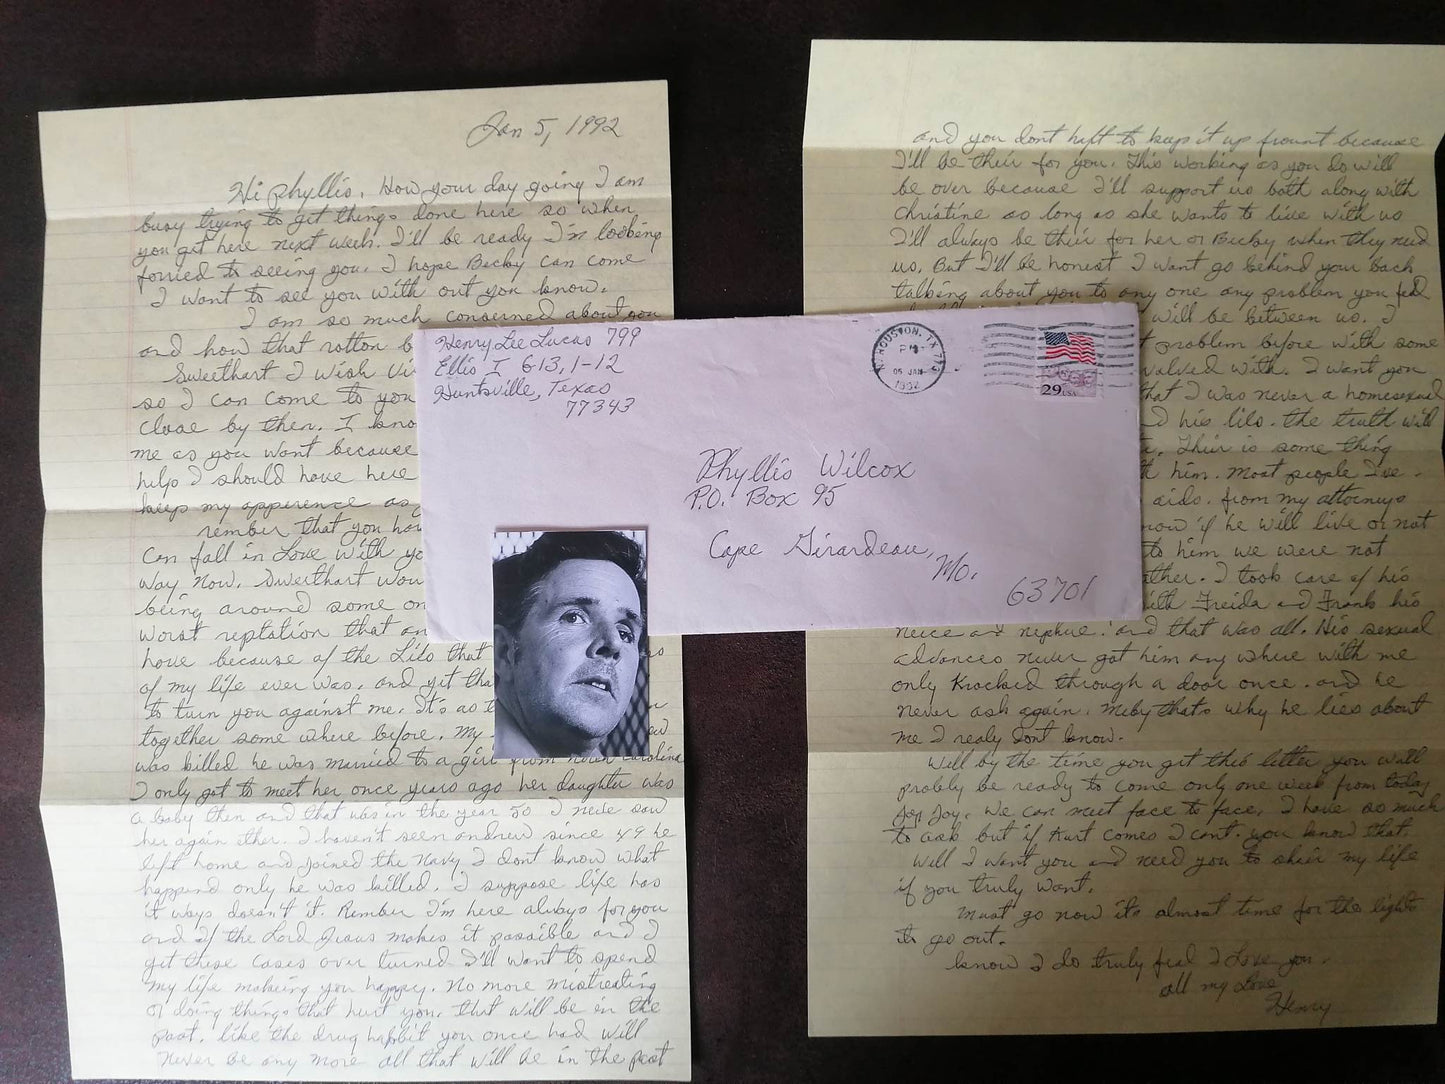 Jan 5, 1992
Hi Phyllis. How your day going I am
busy trying to get things done here so when
you get here next week. I'll be ready I'm looking
forried to seeing you. I hope Becky can come
I want to see you with out you know.
I am so much conserned about you
and how that rotton b
Sweethart I wish
so I can come to you
close by then. I kno
me as you want because
help I should have here
keep my apperence as
rember that you hav
can fall in Love with yo
way now. Sweethart wou
being around some on
worst reptation that an
have because of the Lils that
of my life ever was. and yet tha
to turn you against me. It's as t
together some where before. My
was killed he was married to a girl from north carolina
I only got to meet her once years ago her daughter was
a baby then and that was in the year 50 I never saw
her again ether. I haven't seen andrew since 49 he
left home and joined the Navy I dont know what
happend only he was killed. I suppose life has
it ways doesn't it. Rember I'm here always for you
and if the Lord Jesus makes it possible and I
get these cases over turned. I'll want to spend
my life making you happy. No more mistreating
or doing things that hurt you. that will be in the
past. like the drug habbit you once had will
never be any more all that will be in the past
Henry Lee Lucas 799
Ellis I G-13, 1-12
Huntsville, Texas
77343
HOUSTON, TX 773
PM
05 JAN
1992
29 USA
Phyllis Wilcox
P.O. Box 95
Cape Girardeau,
Mo.
63701
and you dont haft to keep it up frount because
I'll be their for you. This working as you do will
be over because I'll support us both along with
christine as long as she wants to live with us
I'll always be their for her or Becky when they need
us. But I'll be honest I want go behind your back
talking about you to any one any problem you feal
will be between us. I
t problem before with some
valved with. I want you
that I was never a homesexual
d his lils. the truth will
Their is some thing
t him. Most people I've
aids. from my attorneys
now if he will live or not
to him we were not
ather. I took care of his
ith Freida and Frank his
neice and nephue. and that was all. His sexual
advances never got him any where with me
only Knocked through a door once. and he
never ask again. Meby that's why he lies about
me I realy dont know.
Well by the time you get this letter you will
probly be ready to come only one week from today
Joy Joy. We can meet face to face. I have so much
to ask but if Kurt comes I cant. you know that.
Well I want you and need you to shair my life
if you truly want.
Must go now its almost time for the lights
to go out.
know I do truly feal I Love you.
all my Love
Henry